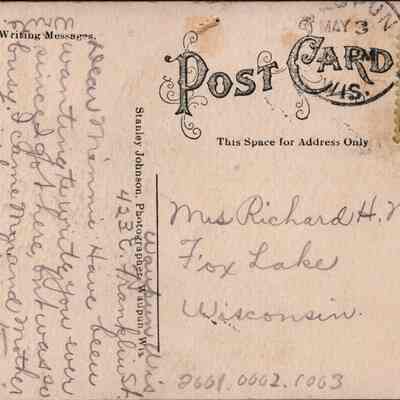 Writing Messages.
PUN
MAY 3
WIS.
POST CARD
This Space for Address Only
Stanley Johnson, Photographer, Waupun, Wis.
Waupun Wis
423 E. Franklin St.
Dear Minnie Have been
wanting to write you ever
since I got here, but was so
busy. I came Myr and Mother
Mrs Richard H.
Fox Lake
Wisconsin.
2001.0002.1003